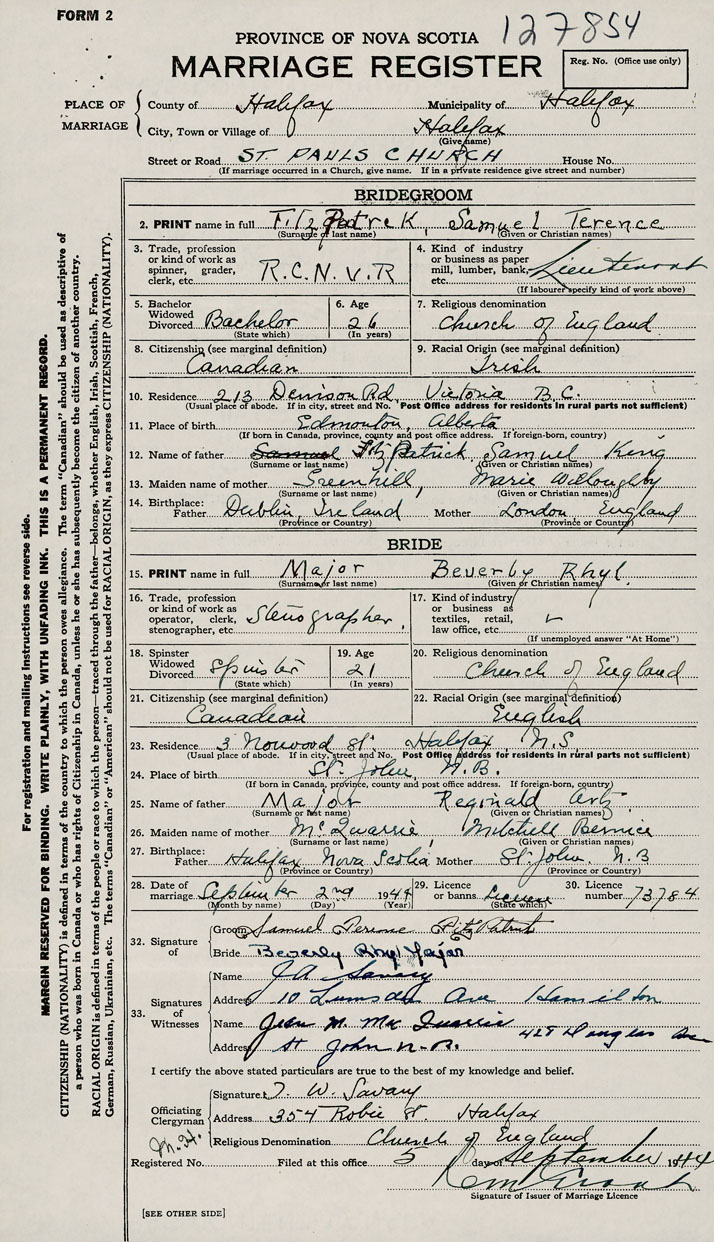 FORM 2
127854
PROVINCE OF NOVA SCOTIA
MARRIAGE REGISTER
Reg. No. (Office use only)
PLACE OF MARRIAGE
County of Halifax Municipality of Halifax
City, Town or Village of Halifax
(Give name)
Street or Road ST. PAULS CHURCH House No.
(If marriage occurred in a Church, give name. If in a private residence give street and number)
BRIDEGROOM
2. PRINT name in full FitzPatrick, Samuel Terence
(Surname or last name) (Given or Christian names)
3. Trade, profession or kind of work as spinner, grader, clerk, etc. R.C.N.V.R
4. Kind of industry or business as paper mill, lumber, bank, etc. Lieutenant
(If labourer specify kind of work above)
5. Bachelor Widowed Divorced Bachelor
(State which)
6. Age 26
(In years)
7. Religious denomination
Church of England
8. Citizenship (see marginal definition)
Canadian
9. Racial Origin (see marginal definition)
Irish
10. Residence 213 Denison Rd. Victoria B.C.
(Usual place of abode. If in city, street and No. Post Office address for residents in rural parts not sufficient)
11. Place of birth Edmonton, Alberta
(If born in Canada, province, county and post office address. If foreign-born, country)
12. Name of father Samuel FitzPatrick Samuel King
(Surname or last name) (Given or Christian names)
13. Maiden name of mother Greenhill, Marie Willoughby
(Surname or last name) (Given or Christian names)
14. Birthplace: Father Dublin, Ireland Mother London England
(Province or Country) (Province or Country)
BRIDE
15. PRINT name in full Major Beverly Rhyl.
(Surname or last name) (Given or Christian names)
16. Trade, profession or kind of work as operator, clerk, stenographer, etc. Stenographer.
17. Kind of industry or business as textiles, retail, law office, etc.
(If unemployed answer "At Home")
18. Spinster Widowed Divorced Spinster
(State which)
19. Age 21
(In years)
20. Religious denomination
Church of England
21. Citizenship (see marginal definition)
Canadian
22. Racial Origin (see marginal definition)
English
23. Residence 3 Norwood St. Halifax N.S
(Usual place of abode. If in city, street and No. Post Office address for residents in rural parts not sufficient)
24. Place of birth St. John, N.B.
(If born in Canada, province, county and post office address. If foreign-born, country)
25. Name of father Major Reginald
(Surname or last name) (Given or Christian names)
26. Maiden name of mother McQuarrie, Mitchell Bernice
(Surname or last name) (Given or Christian names)
27. Birthplace: Father Halifax Nova Scotia Mother St. John, N.B
(Province or Country) (Province or Country)
28. Date of marriage September 2nd 1944
(Month by name) (Day) (Year)
29. Licence or banns License
(State which)
30. Licence number 73784
32. Signature of
Groom Samuel Terence FitzPatrick
Bride Beverly Rhyl Major
33. Signatures of Witnesses
Name J.A. Savary
Address 10 Lumsden Ave Hamilton
Name Jean M. MacQuarrie
Address St John N.B. 428 Douglas Ave
I certify the above stated particulars are true to the best of my knowledge and belief.
Officiating Clergyman
Signature T. W. Savary
Address 354 Robie St. Halifax
Religious Denomination Church of England
Registered No. Filed at this office 5 day of September 1944
Signature of Issuer of Marriage Licence
[SEE OTHER SIDE]
For registration and mailing instructions see reverse side.
MARGIN RESERVED FOR BINDING. WRITE PLAINLY, WITH UNFADING INK. THIS IS A PERMANENT RECORD.
CITIZENSHIP (NATIONALITY) is defined in terms of the country to which the person owes allegiance. The term "Canadian" should be used as descriptive of
a person who was born in Canada or who has rights of Citizenship in Canada, unless he or she has subsequently become the citizen of another country.
RACIAL ORIGIN is defined in terms of the people or race to which the person—traced through the father—belongs, whether English, Irish, Scottish, French,
German, Russian, Ukrainian, etc. The terms "Canadian" or "American" should not be used for RACIAL ORIGIN, as they express CITIZENSHIP (NATIONALITY).